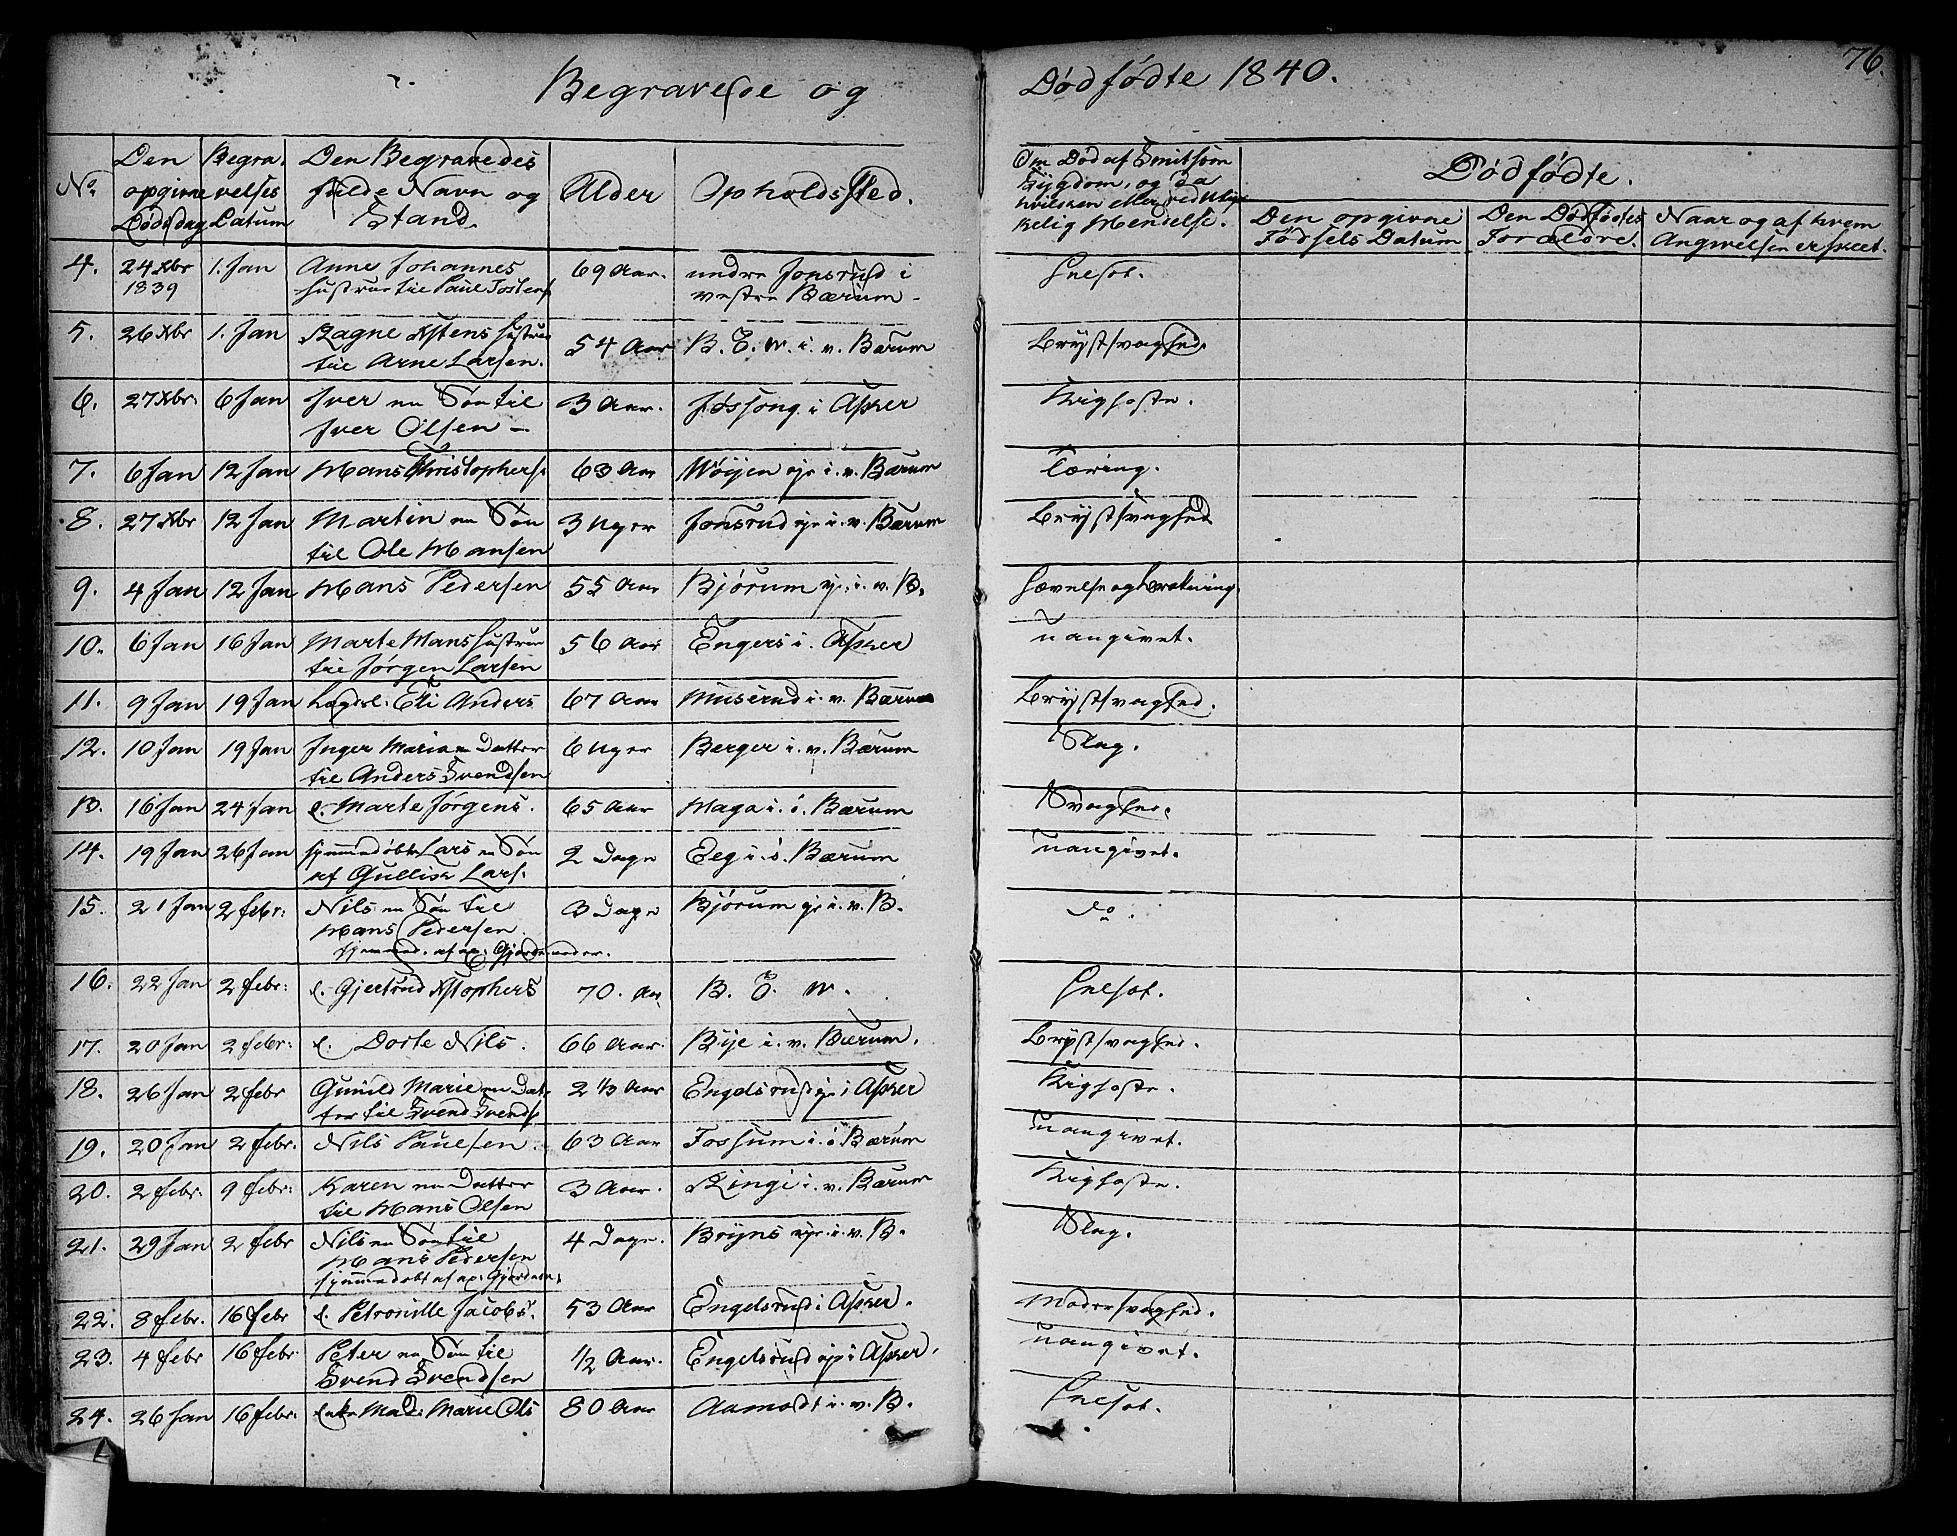 76.
Begravede og Dødfødte 1840.
No. Den opgivne Dødsdag Begravelses Datum Den Begravedes fulde Navn og Stand Alder Opholdssted.
Om Død af Smitsom Sygdom, og da hvilken eller ved Ulykkelig Hendelse.
Dødfødte.
Den opgivne Fødsels Datum Den Dødfødtes Forældre. Naar og af hvem Angivelsen er skeet.
4. 24 Xbr 1839 1. Jan Anne Johannes 69 Aar. nedre Jonsrud i
Hustrue til Poul Tostens vestre Bærum
5. 26 Xbr 1. Jan Ragne Xstens Hustrue
til Arne Larsen. 54 Aar B. E. W. i. v. Bærum Brystsvaghed.
6. 27 Xbr. 6 Jan Iver en Søn til 3 Aar. i Asker Kighoste.
Iver Olsen
7. 6 Jan 12 Jan Hans Christophers. 63 Aar Wøijen eje i. v. Bærum Tæring.
8. 27 Xbr 12 Jan Martin en Søn 3 Uger Jonsrud eje i. v. Bærum Brystsvaghed
til Ole Hansen
9. 4 Jan 12 Jan Hans Pedersen 55 Aar Bjørum eje. i. v. B.
10. 6 Jan 16 Jan Marte Hans Hustrue 56 Aar Engers i. Asker uangivet.
til Jørgen Larsen
11. 9 Jan 19 Jan Lægdsl. Eli Anders 67 Aar Muserud i. v. Bærum Brystsvaghed.
12. 10 Jan 19 Jan Inger Maria en Datter 6 Uger Berger i. v. Bærum Slag.
til Anders Svendsen
13. 16 Jan 24 Jan E. Marte Jørgens. 65 Aar Haga i. ø. Bærum Svaghed.
14. 19 Jan 26 Jan hjemmedøbt Lars en Søn 2 Dage Eeg i. ø. Bærum uangivet.
af Gullik Lars.
15. 21 Jan 2 Febr: Nils en Søn til 3 Dage Bjørum eje i. v. B. Do.
Hans Pedersen.
hjemmed. af ex. Gjordemoder.
16. 22 Jan 2 Febr: E. Gjertrud Xstophers 70. Aar B. E. W.
17. 20 Jan 2 Febr: E. Dorte Nils. 66 Aar. Bije i. v. Bærum. Brystsvaghed.
18. 26 Jan 2 Febr Gunild Marie en Dat- 2 1/3 Aar Engelsrud eje i Asker Kighoste.
ter til Svend Svends.
19. 20 Jan 2 Febr. Nils Paulsen 63 Aar Fossum i. ø Bærum uangivet.
20. 2 Febr. 9 Febr: Karen en Datter 3 Aar. Ringi i. v. Bærum Kighoste.
til Hans Olsen
21. 29 Jan 2 Febr Nils en Søn til 4 Dage. Bryns eje. i. v. B. Slag.
Hans Pedersen
hjemmedøbt af ex: Gjordem.
22. 8 Febr. 16 Febr E. Petronille Jacobs. 53 Aar Engelsrud i Asker. Modersvaghed.
23. 4 Febr 16 Febr. Peter en Søn til 1/2 Aar. Engelsrud eje i Asker. uangivet.
Svend Svendsen
24. 26 Jan 16 Febr. Enke Mad. Marie Ols 80 Aar Aamodt i. v. B.